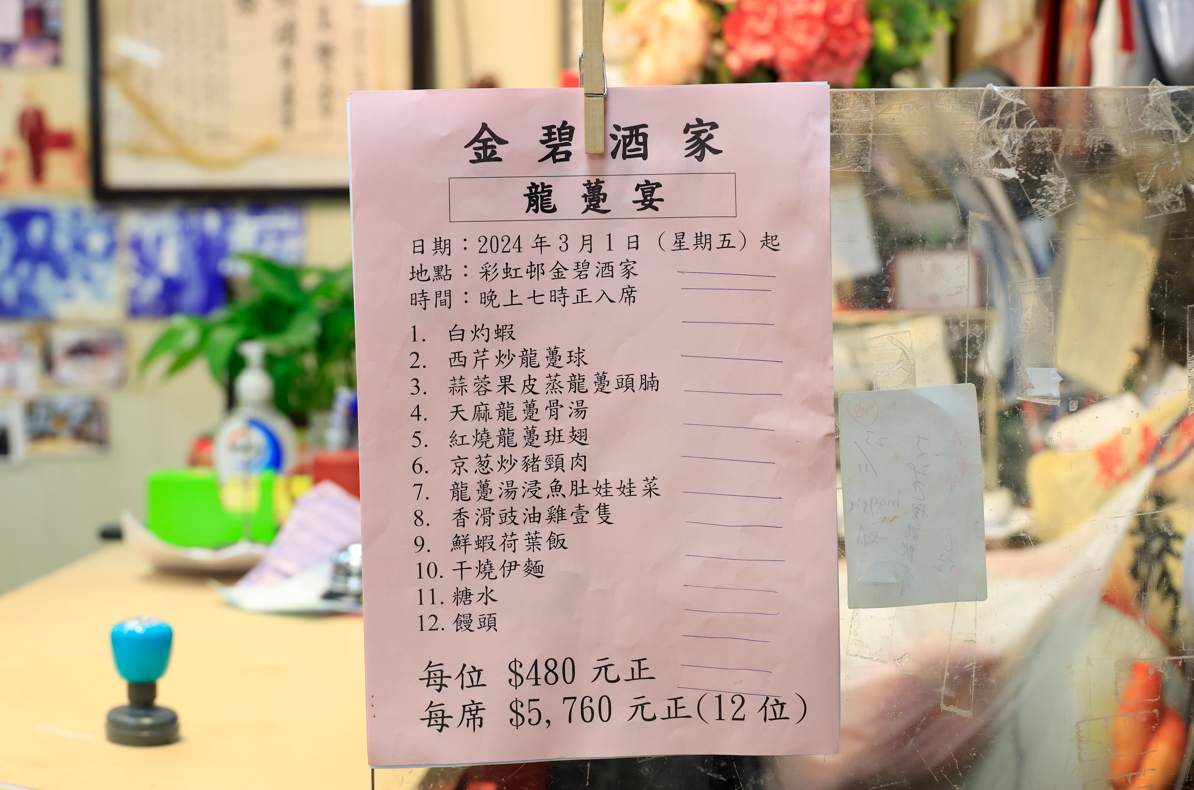 金碧酒家
龍躉宴
日期：2024年3月1日（星期五）起
地點：彩虹邨金碧酒家
時間：晚上七時正入席
1. 白灼蝦
2. 西芹炒龍躉球
3. 蒜蓉果皮蒸龍躉頭腩
4. 天麻龍躉骨湯
5. 紅燒龍躉班翅
6. 京葱炒豬頸肉
7. 龍躉湯浸魚肚娃娃菜
8. 香滑豉油雞壹隻
9. 鮮蝦荷葉飯
10. 干燒伊麵
11. 糖水
12. 饅頭
每位 $480 元正
每席 $5,760 元正(12 位)